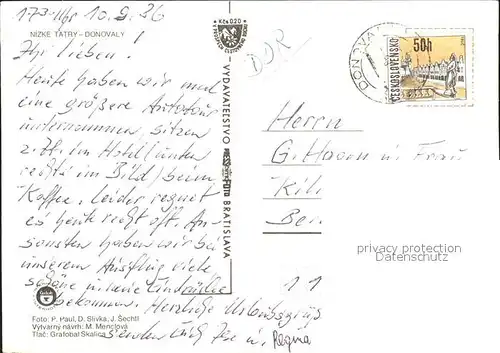 1730 Uhr 10.9.86
NÍZKE TATRY - DONOVALY
Ihr Lieben!
Heute haben wir mal
eine größere Autotour
unternommen, sitzen
z.Zt. im Hotel (unten
rechts im Bild) beim
Kaffee. Leider regnet
es heute recht oft. An-
sonsten haben wir bei
unserem Ausflug viele
schöne u. neue Eindrücke
bekommen. Herzliche Urlaubsgrüße
senden Euch u. Regina
Foto: P. Paul, D. Slivka, J. Šechtl
Výtvarný návrh: M. Menclová
Tlač: Grafobal Skalica
Kčs 0,20
VYDAVATEĽSTVO
BRATISLAVA
DDR
DONOVA
50h
ČESKOSLOVENSKO
Herrn
G. u. Frau
Ber.
privacy protection
Datenschutz
11